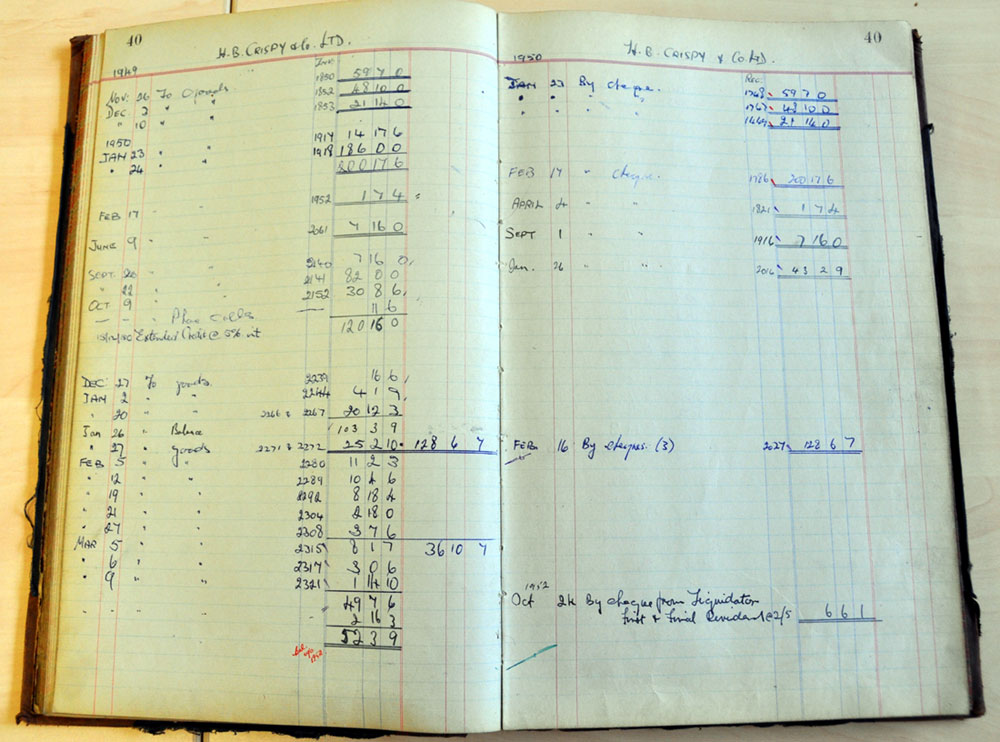 40
H. B. CRISPY & Co. LTD.
1949
Inv.
NOV. 26 To Goods 1850 59 7 0
DEC 2 " " 1852 48 10 0
" 10 " " 1853 21 14 0
1950
JAN 23 " " 1917 14 17 6
" 24 " " 1918 186 0 0
200 17 6
FEB 17 1952 1 7 4
JUNE 9 " " 2061 7 16 0
SEPT. 20 " 2140 7 16 0
" 22 " 2141 82 0 0
OCT 9 " 2152 30 8 6
Phone calls 11 6
120 16 0
Extended Credit @ 5%
DEC. 27 To goods 2239 16 6
JAN 2 " " 2244 4 1 9
" 20 " " 2266 & 2267 20 12 3
Jan 26 " Balance 103 3 9
" 27 " goods 2271 & 2272 25 2 10 128 6 7
FEB 5 " " 2280 11 2 3
" 12 " " 2289 10 4 6
" 19 " " 2292 8 18 4
" 21 " " 2304 2 18 0
" 27 " " 2308 3 7 6
MAR 5 " " 2315 8 1 7 36 10 7
" 6 " " 2317 3 0 6
" 9 " " 2321 1 14 10
49 7 6
2 16 3
52 3 9
40
H. B. CRISPY & Co Ltd.
1950
Rec.
JAN 23 By Cheque. 1748 59 7 0
" " " 1767 48 10 0
" " " 21 14 0
FEB 17 " Cheque. 1786 200 17 6
APRIL 4 " " 1821 1 7 4
SEPT 1 " " 1916 7 16 0
Jan. 26 " " 2016 43 2 9
FEB 16 By cheques. (3) 2027 128 6 7
1952
Oct 24 By cheque from Liquidator
First & Final Dividend @ 2/5 6 6 1